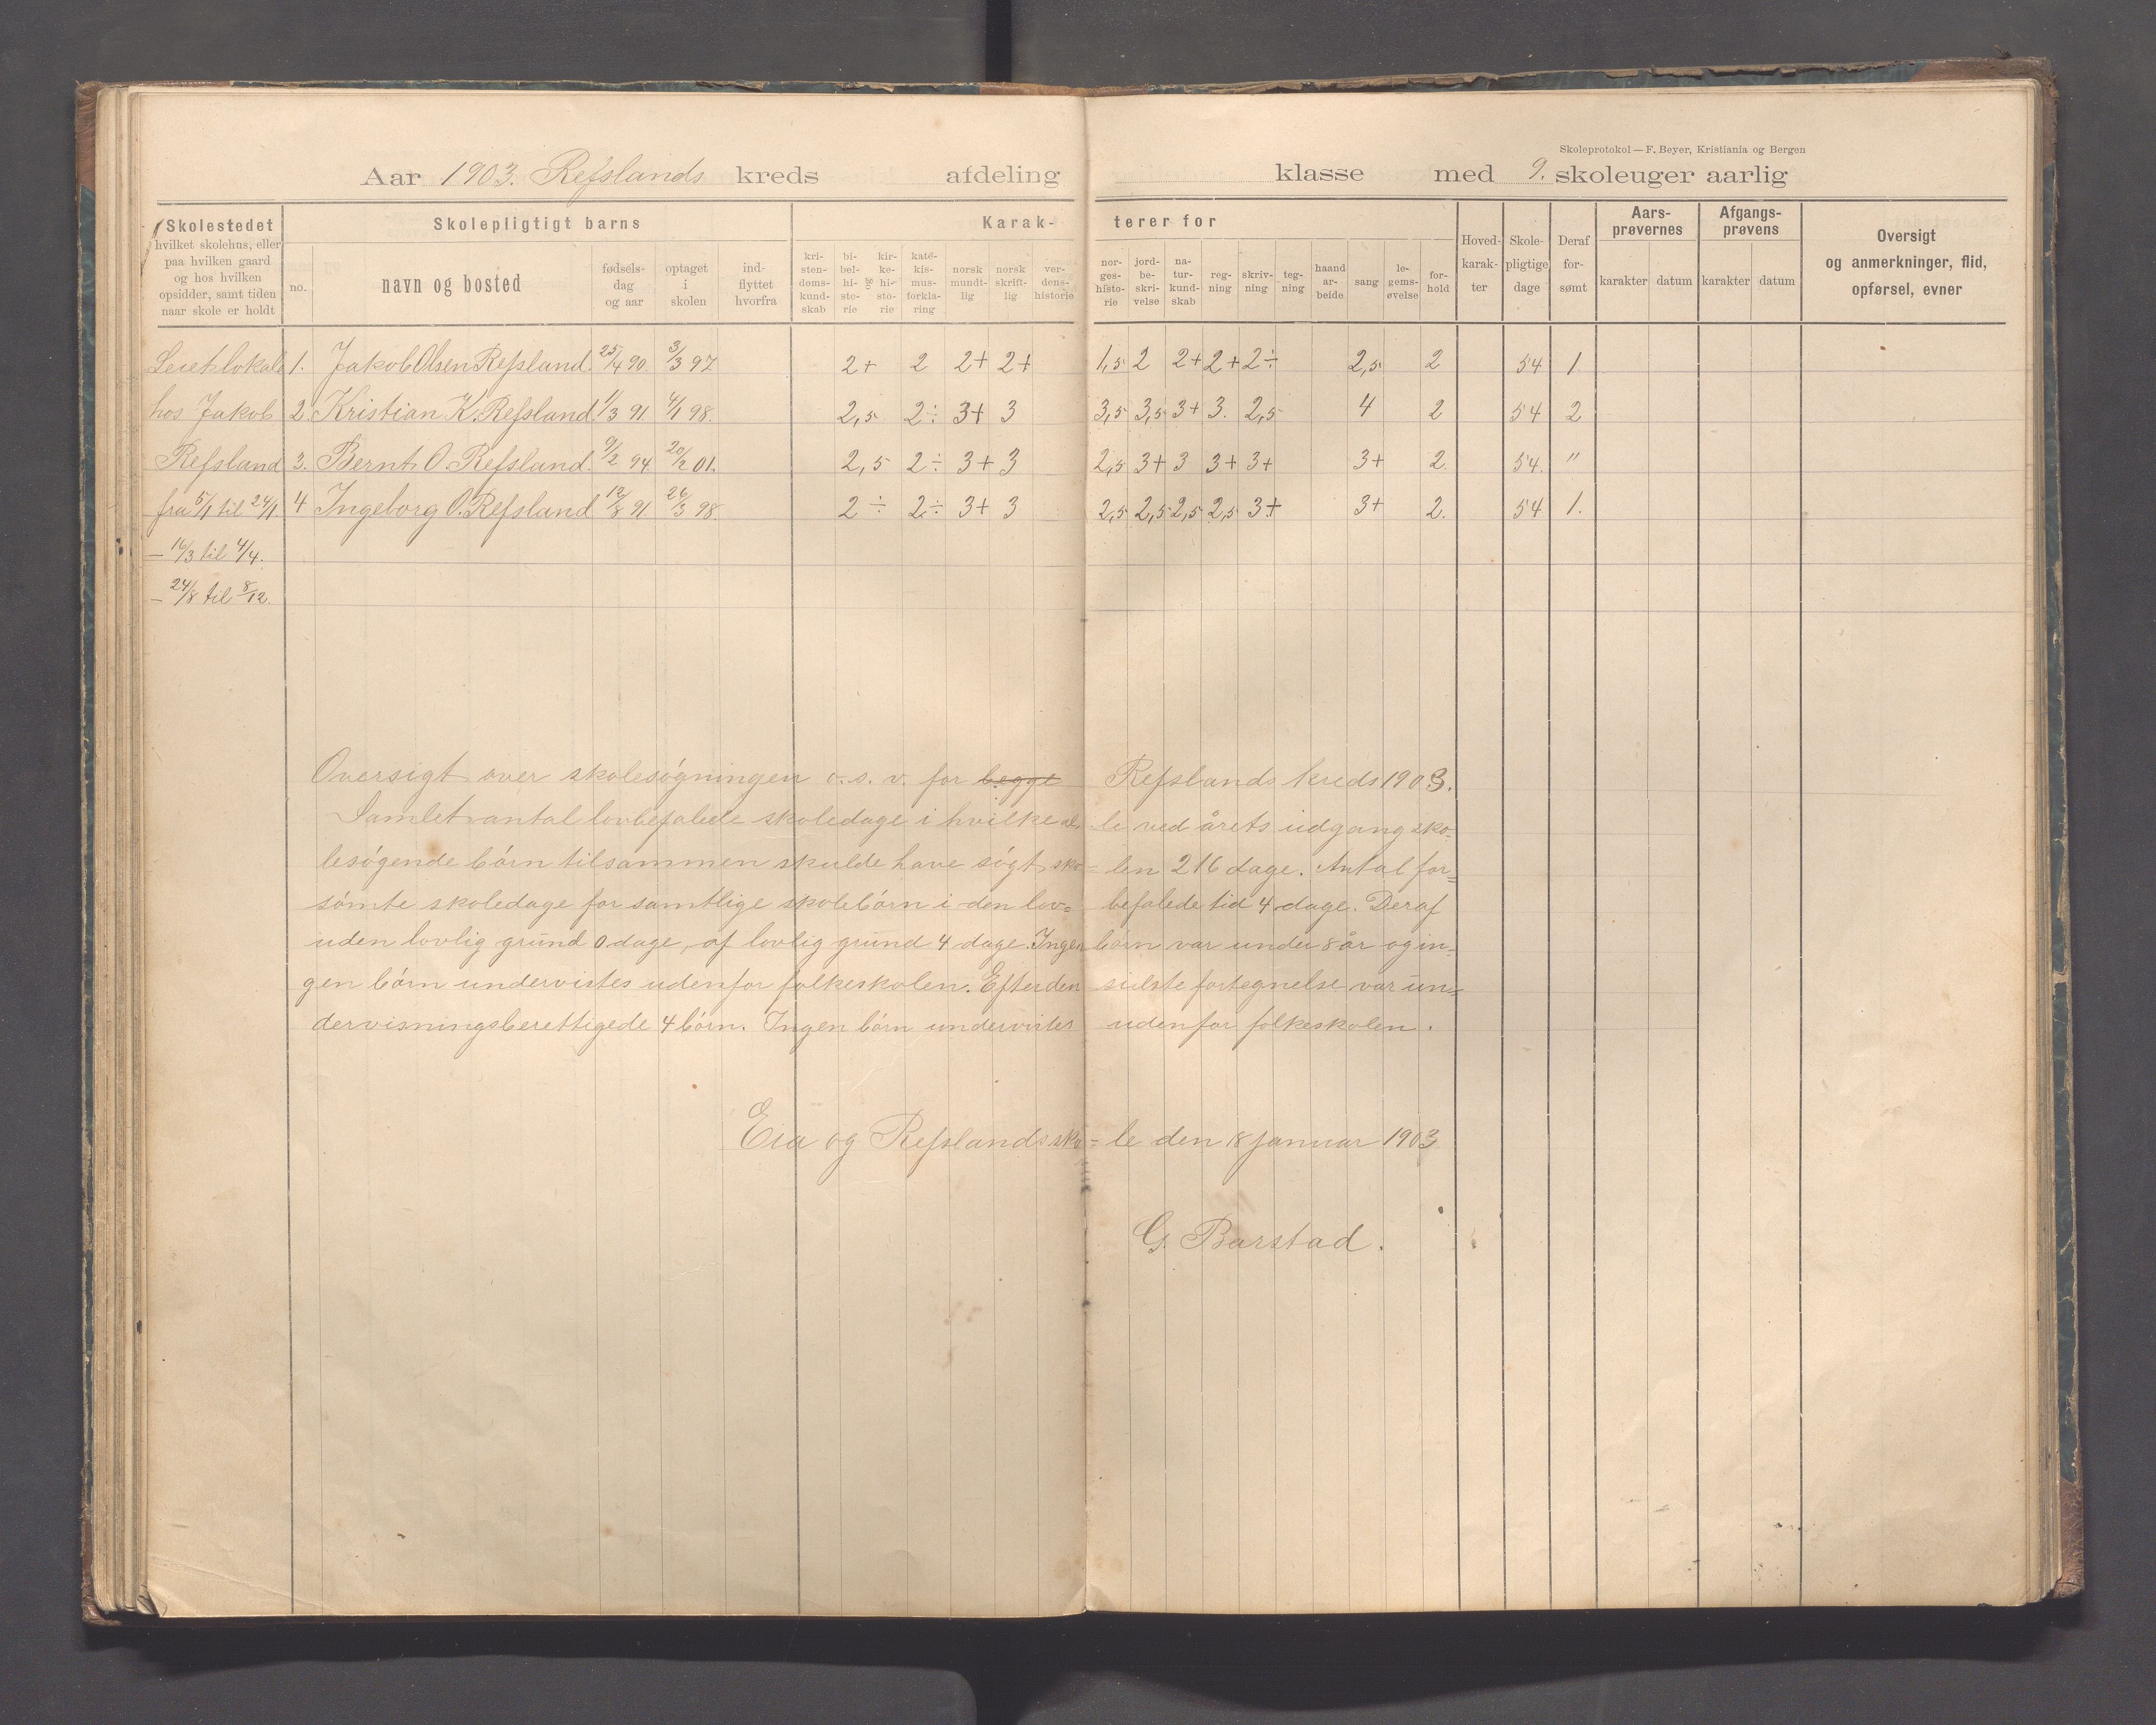 Skoleprotokol — F. Beyer, Kristiania og Bergen
Aar 1903. Refslands kreds afdeling klasse med 9. skoleuger aarlig
Skolestedet
hvilket skolehus, eller
paa hvilken gaard
og hos hvilken
opsidder, samt tiden
naar skole er holdt
Skolepligtigt barns
no.
navn og bosted
fødsels-
dag
og aar
optaget
i
skolen
ind-
flyttet
hvorfra
Karak-
terer for
kri-
sten-
doms-
kund-
skab
bi-
bel-
hi-
sto-
rie
og
kir-
ke-
hi-
sto-
rie
kate-
kis-
mus-
forkla-
ring
norsk
mundt-
lig
norsk
skrift-
lig
ver-
dens-
historie
nor-
ges-
histo-
rie
jord-
be-
skri-
velse
na-
tur-
kund-
skab
reg-
ning
skriv-
ning
teg-
ning
haand
ar-
beide
sang
le-
gems-
øvelse
for-
hold
Hoved-
karak-
ter
Skole-
pligtige
dage
Deraf
for-
sømt
Aars-
prøvernes
karakter datum
Afgangs-
prøvens
karakter datum
Oversigt
og anmerkninger, flid,
opførsel, evner
Leiet lokale 1. Jakob Olsen Refsland. 25/4 90. 3/3 97 2+ 2 2+ 2+ 1,5 2 2+ 2+ 2÷ 2,5 2 54 1
hos Jakob 2. Kristian K. Refsland. 1/3 91. 4/1 98. 2,5 2÷ 3+ 3 3,5 3,5 3+ 3. 2,5 4 2 54 2
Refsland 3. Bernt O. Refsland. 9/2 94. 20/2 01. 2,5 2÷ 3+ 3 2,5 3+ 3 3+ 3+ 3+ 2. 54. "
fra 5/1 til 24/1. 4 Ingeborg O. Refsland 12/8 91 26/3 98. 2÷ 2÷ 3+ 3 2,5 2,5 2,5 2,5 3+ 3+ 2. 54 1.
— 16/3 til 4/4.
— 24/8 til 8/12.
Oversigt over skolesøgningen o. s. v. for begge Refslands kreds 1903.
Samlet antal lovbefalede skoledage i hvilke al- le ved årets udgang sko-
lesøgende børn tilsammen skulde have søgt sko= len 216 dage. Antal for=
sømte skoledage for samtlige skolebørn i den lov= befalede tid 4 dage. Deraf
uden lovlig grund 0 dage, af lovlig grund 4 dage. Ingen børn var under 8 år og in=
gen børn undervistes udenfor folkeskolen. Efter den sidste fortegnelse var un=
dervisningsberettigede 4 børn. Ingen børn undervistes udenfor folkeskolen.
Eia og Refslands sko= le den 18 januar 1903
G. Barstad.